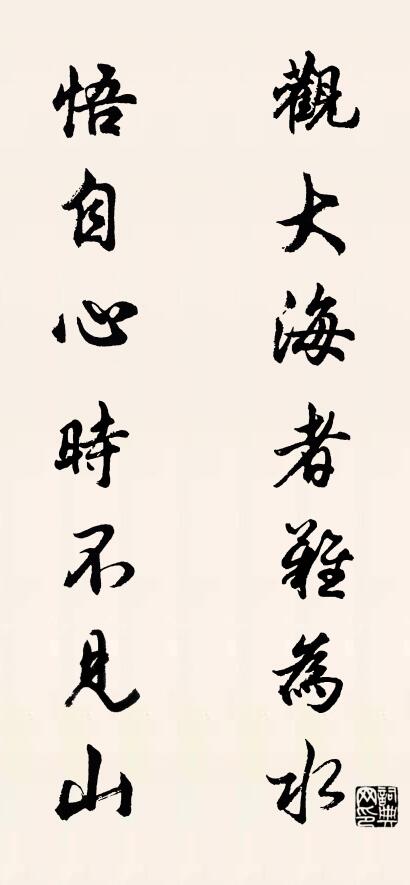 觀大海者難為水
悟自心時不見山
詞典網印